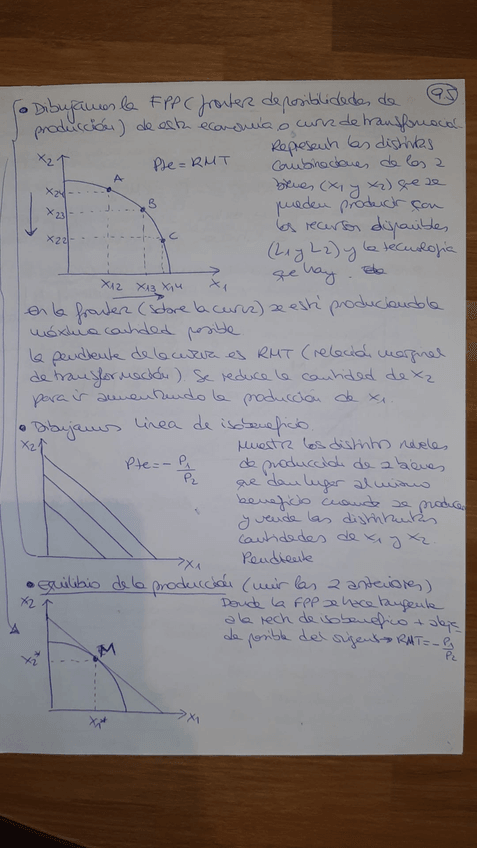 9.5
• Dibujamos la FPP (frontera de posibilidades de
producción) de esta economía o curva de transformación
x2
Pte = RMT
A
B
C
x24
x23
x22
x12 x13 x14 x1
Representa las distintas
combinaciones de los 2
bienes (x1 y x2) que se
pueden producir con
los recursos disponibles
(L1 y L2) y la tecnología
que hay.
en la frontera (sobre la curva) se está produciendo la
máxima cantidad posible
la pendiente de la curva es RMT (relación marginal
de transformación). Se reduce la cantidad de x2
para ir aumentando la producción de x1.
• Dibujamos línea de isobeneficio.
x2
Pte = - P1/P2
x1
Muestra los distintos niveles
de producción de 2 bienes
que dan lugar al mismo
beneficio cuando se producen
y vende las distintas
cantidades de x1 y x2.
Pendiente
• equilibrio de la producción (unir las 2 anteriores)
x2
M
x2*
x1* x1
Donde la FPP se hace tangente
a la recta de isobeneficio + aleja-
da posible del origen → RMT = - P1/P2